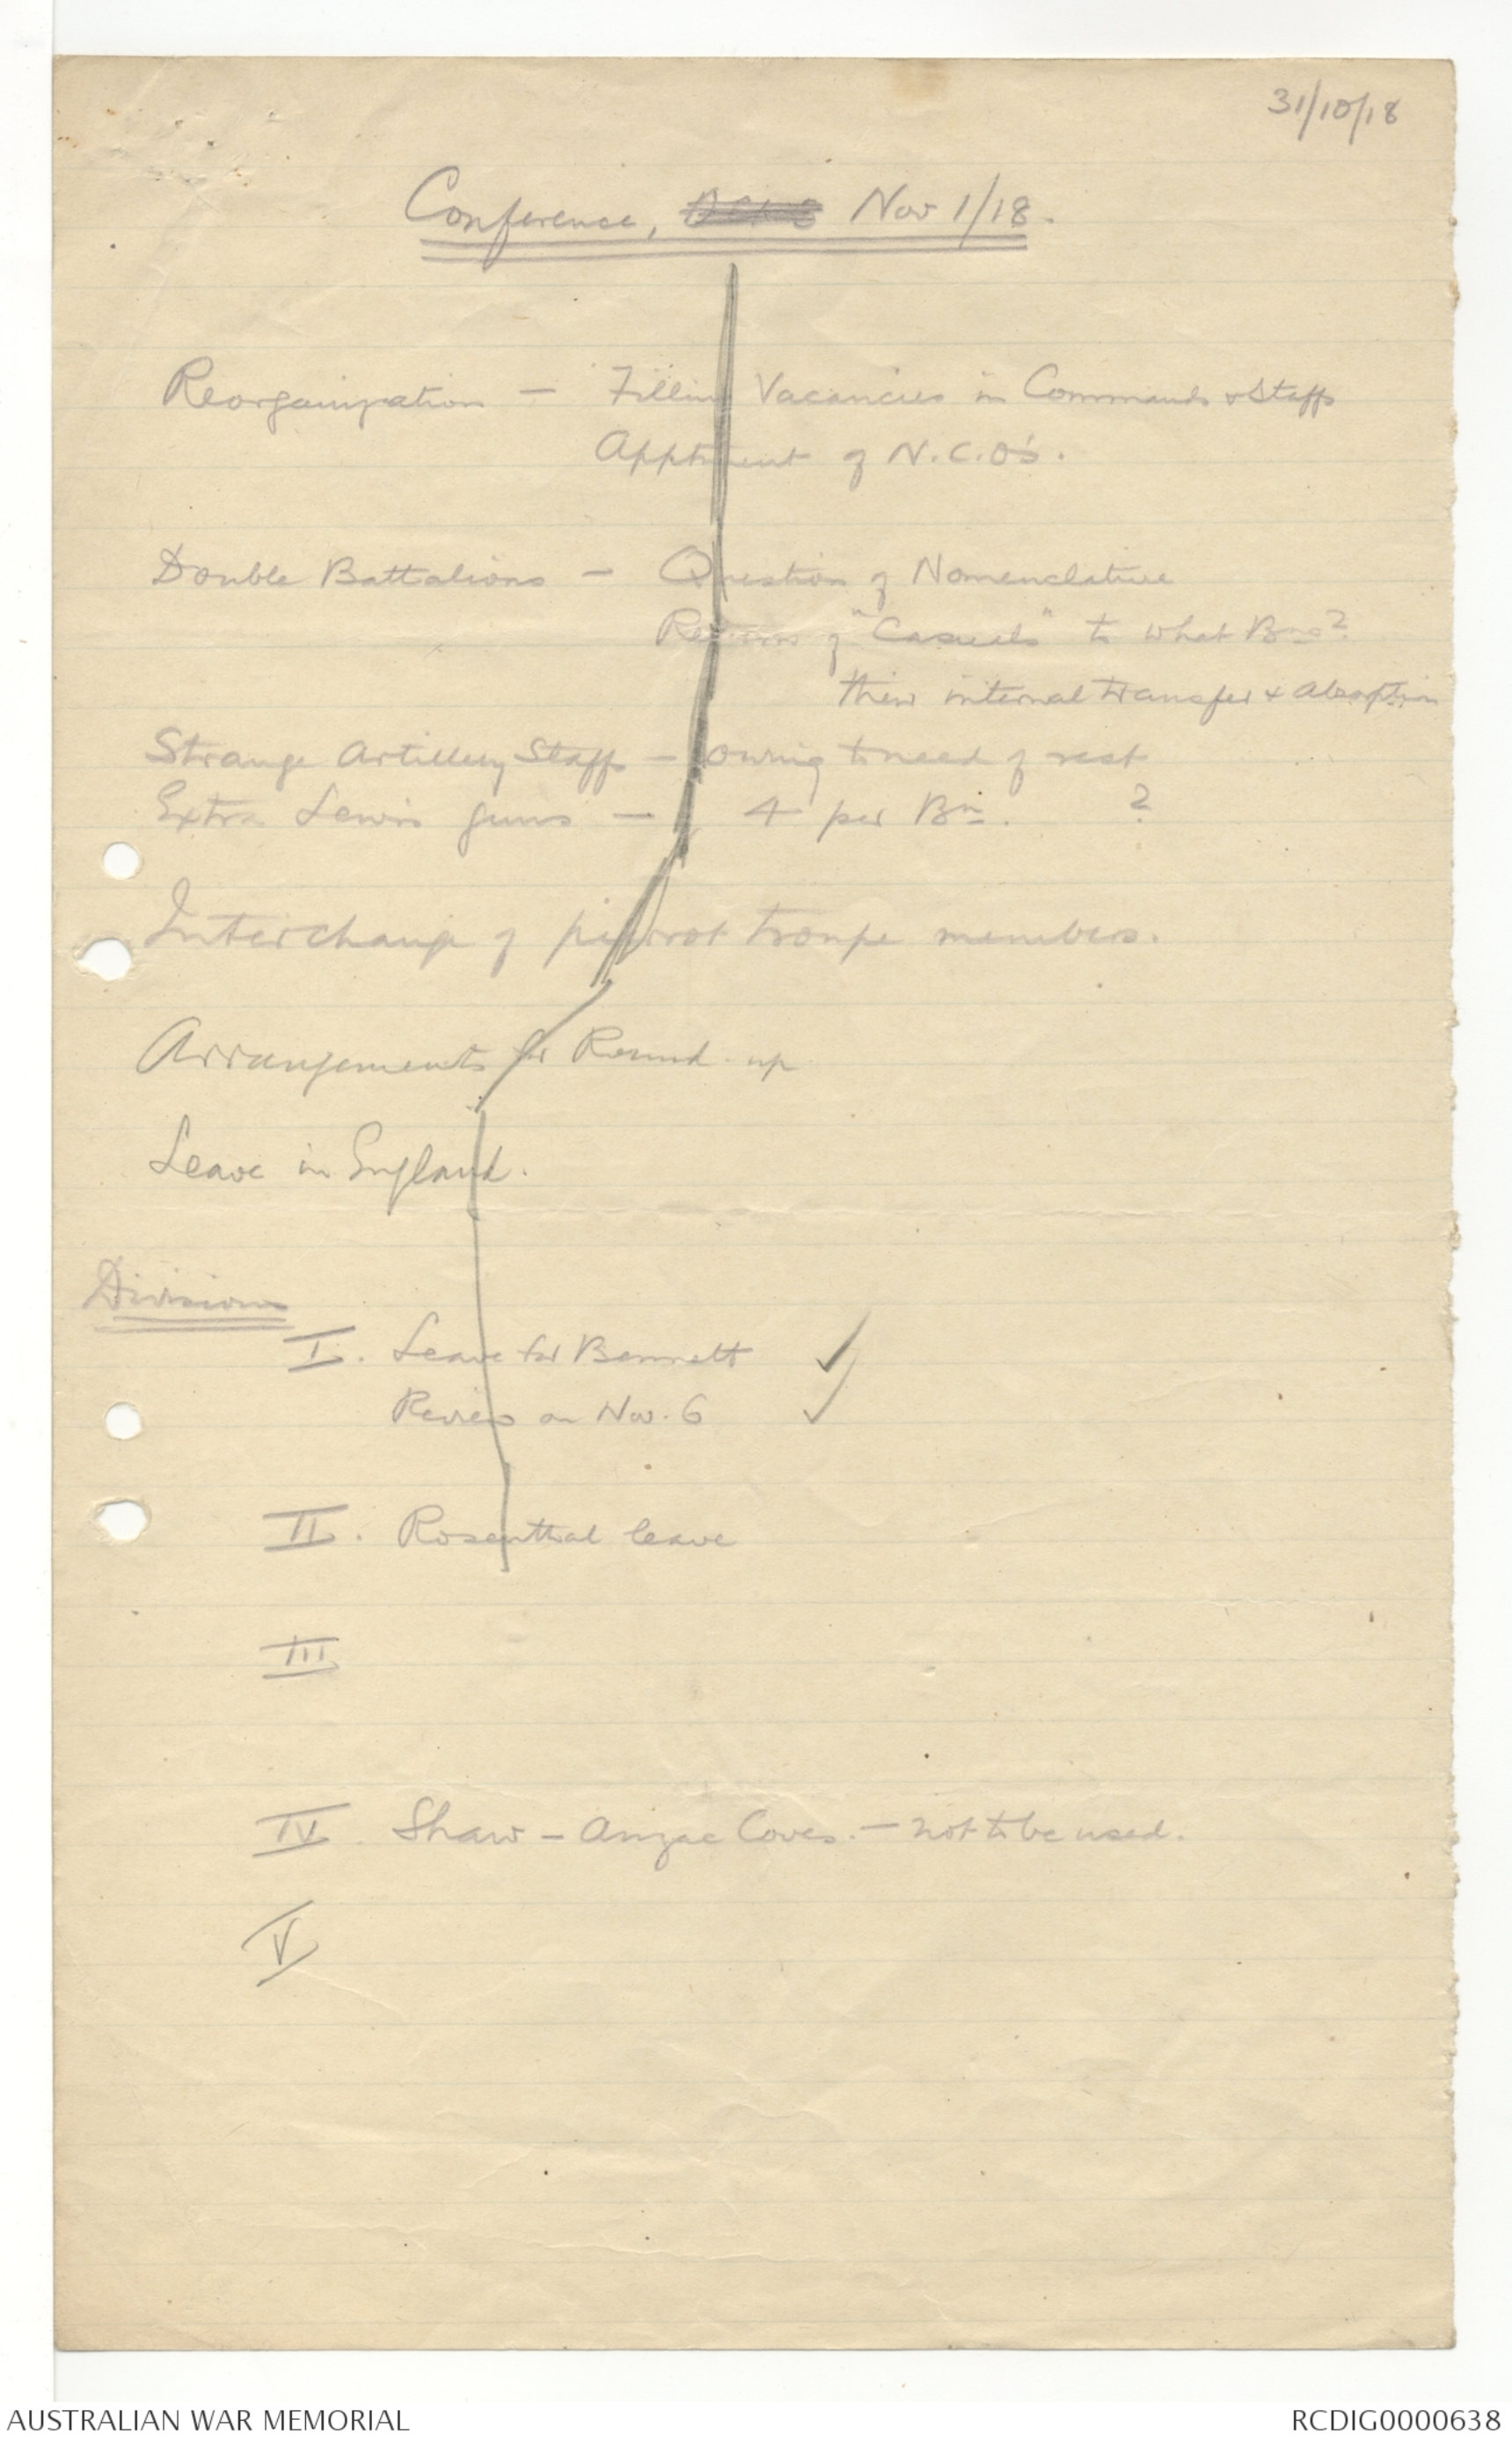 31/10/18
Conference, Nov 1/18.
Reorganization — Filling Vacancies in Commands & Staffs
Apptment of N.C.O's.
Double Battalions — Question of Nomenclature
Return of "Casuals" to what Bns?
their internal transfer & absorption
Strange Artillery Staff — owing to need of rest
Extra Lewis guns — 4 per Bn. ?
Interchange of pierrot troupe members.
Arrangements for Round-up
Leave in England.
Divisions
I. Leave for Bennett ✓
Review on Nov. 6 ✓
II. Rosenthal leave
III
IV. Shaw — Anzac Coves. — not to be used.
V
AUSTRALIAN WAR MEMORIAL
RCDIG0000638